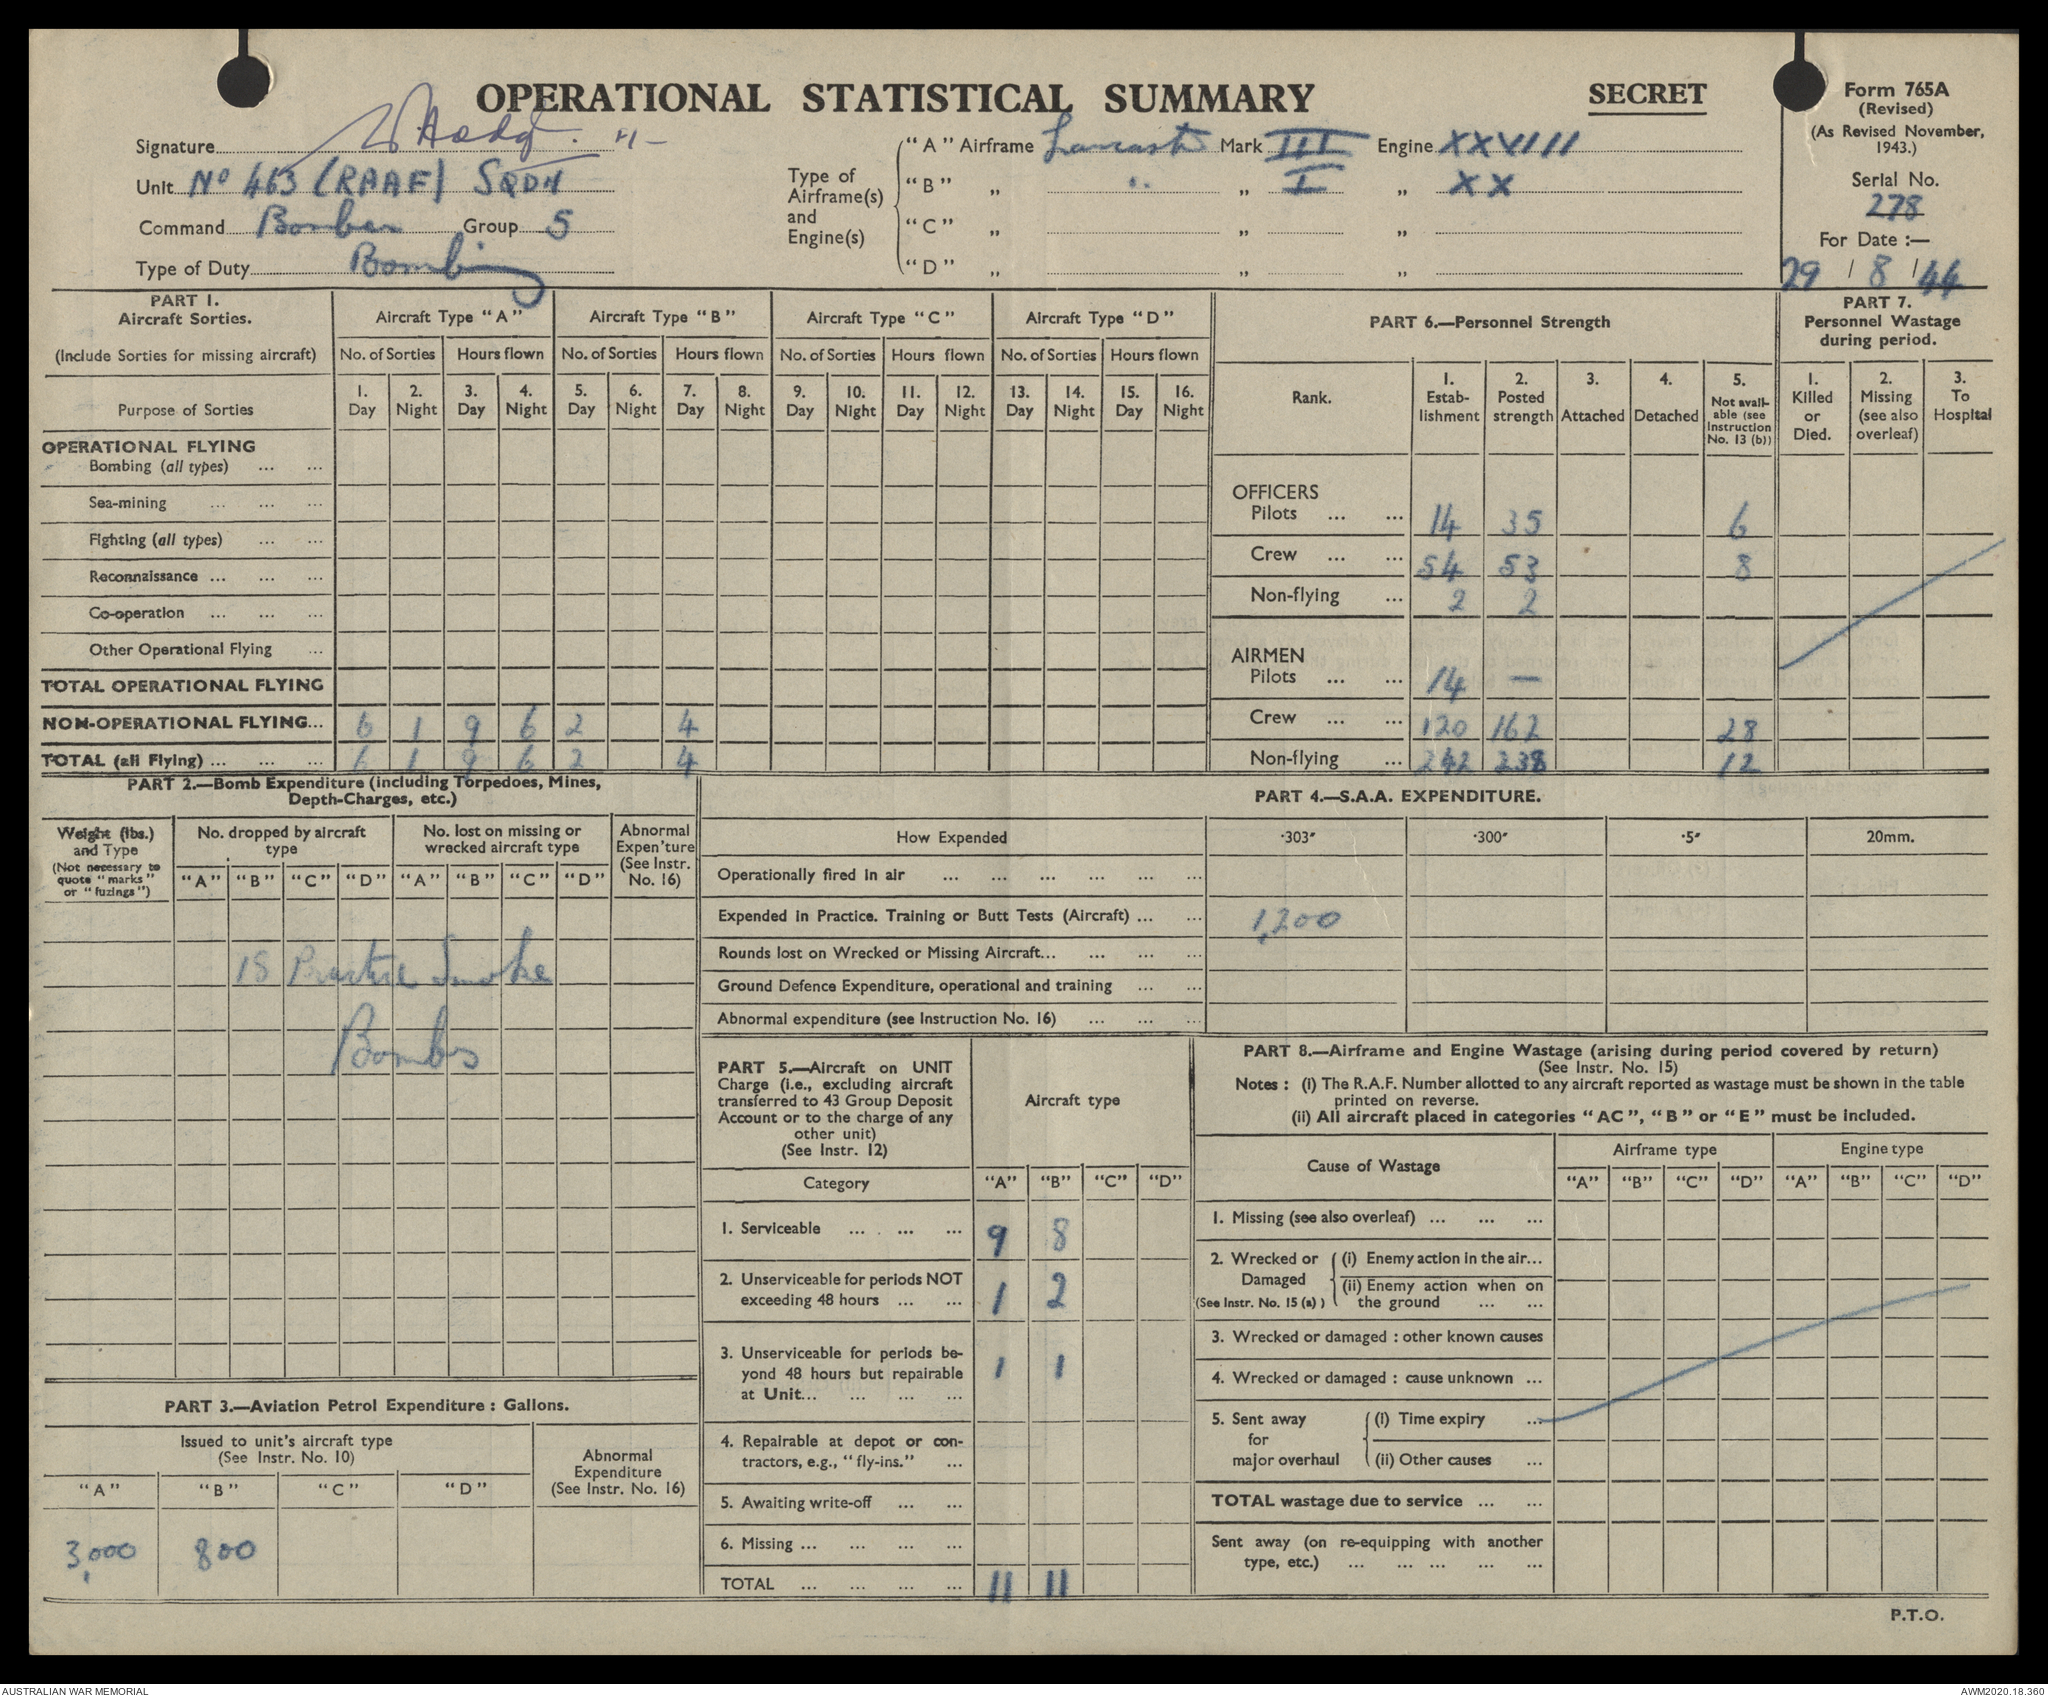 OPERATIONAL STATISTICAL SUMMARY
SECRET
Form 765A
(Revised)
(As Revised November,
1943.)
Serial No.
278
For Date :—
29 / 8 / 44
Signature
Unit No 463 (RAAF) SQDN
Command Bomber Group 5
Type of Duty Bombing
Type of
Airframe(s)
and
Engine(s)
"A" Airframe Lancaster Mark III Engine XXVIII
"B" „ " „ I „ XX
"C" „ „ „
"D" „ „ „
PART 1.
Aircraft Sorties.
(Include Sorties for missing aircraft)
Purpose of Sorties
Aircraft Type "A" Aircraft Type "B" Aircraft Type "C" Aircraft Type "D"
No. of Sorties Hours flown No. of Sorties Hours flown No. of Sorties Hours flown No. of Sorties Hours flown
1. 2. 3. 4. 5. 6. 7. 8. 9. 10. 11. 12. 13. 14. 15. 16.
Day Night Day Night Day Night Day Night Day Night Day Night Day Night Day Night
OPERATIONAL FLYING
Bombing (all types) ... ...
Sea-mining ... ... ...
Fighting (all types) ... ...
Reconnaissance ... ... ...
Co-operation ... ... ...
Other Operational Flying ...
TOTAL OPERATIONAL FLYING
NON-OPERATIONAL FLYING... 6 1 9 6 2 4
TOTAL (all Flying) ... ... ... 6 1 9 6 2 4
PART 6.—Personnel Strength
Rank.
1.
Estab-
lishment
2.
Posted
strength
3.
Attached
4.
Detached
5.
Not avail-
able (see
Instruction
No. 13 (b))
OFFICERS
Pilots ... ... 14 35 6
Crew ... ... 54 53 8
Non-flying ... 2 2
AIRMEN
Pilots ... ... 14 —
Crew ... ... 120 162 28
Non-flying ... 242 238 12
PART 7.
Personnel Wastage
during period.
1.
Killed
or
Died.
2.
Missing
(see also
overleaf)
3.
To
Hospital
PART 2.—Bomb Expenditure (including Torpedoes, Mines,
Depth-Charges, etc.)
Weight (lbs.)
and Type
(Not necessary to
quote "marks"
or "fuzings")
No. dropped by aircraft
type
No. lost on missing or
wrecked aircraft type
Abnormal
Expen'ture
(See Instr.
No. 16)
"A" "B" "C" "D" "A" "B" "C" "D"
18 Practice Smoke
Bombs
PART 3.—Aviation Petrol Expenditure : Gallons.
Issued to unit's aircraft type
(See Instr. No. 10)
Abnormal
Expenditure
(See Instr. No. 16)
"A" "B" "C" "D"
3,000 800
PART 4.—S.A.A. EXPENDITURE.
How Expended ·303" ·300" ·5" 20mm.
Operationally fired in air ... ... ... ... ...
Expended in Practice. Training or Butt Tests (Aircraft) ... ... 1,200
Rounds lost on Wrecked or Missing Aircraft... ... ... ...
Ground Defence Expenditure, operational and training ... ...
Abnormal expenditure (see Instruction No. 16) ... ... ...
PART 5.—Aircraft on UNIT
Charge (i.e., excluding aircraft
transferred to 43 Group Deposit
Account or to the charge of any
other unit)
(See Instr. 12)
Aircraft type
Category "A" "B" "C" "D"
1. Serviceable ... ... ... 9 8
2. Unserviceable for periods NOT
exceeding 48 hours ... ... 1 2
3. Unserviceable for periods be-
yond 48 hours but repairable
at Unit... ... ... ... 1 1
4. Repairable at depot or con-
tractors, e.g., "fly-ins." ...
5. Awaiting write-off ... ...
6. Missing ... ... ... ...
TOTAL ... ... ... ... 11 11
PART 8.—Airframe and Engine Wastage (arising during period covered by return)
(See Instr. No. 15)
Notes : (i) The R.A.F. Number allotted to any aircraft reported as wastage must be shown in the table
printed on reverse.
(ii) All aircraft placed in categories "AC", "B" or "E" must be included.
Cause of Wastage
Airframe type Engine type
"A" "B" "C" "D" "A" "B" "C" "D"
1. Missing (see also overleaf) ... ... ...
2. Wrecked or
Damaged
(See Instr. No. 15 (a) )
(i) Enemy action in the air...
(ii) Enemy action when on
the ground ... ...
3. Wrecked or damaged : other known causes
4. Wrecked or damaged : cause unknown ...
5. Sent away
for
major overhaul
(i) Time expiry ...
(ii) Other causes ...
TOTAL wastage due to service ... ...
Sent away (on re-equipping with another
type, etc.) ... ... ... ... ...
P.T.O.
AUSTRALIAN WAR MEMORIAL
AWM2020.18.360